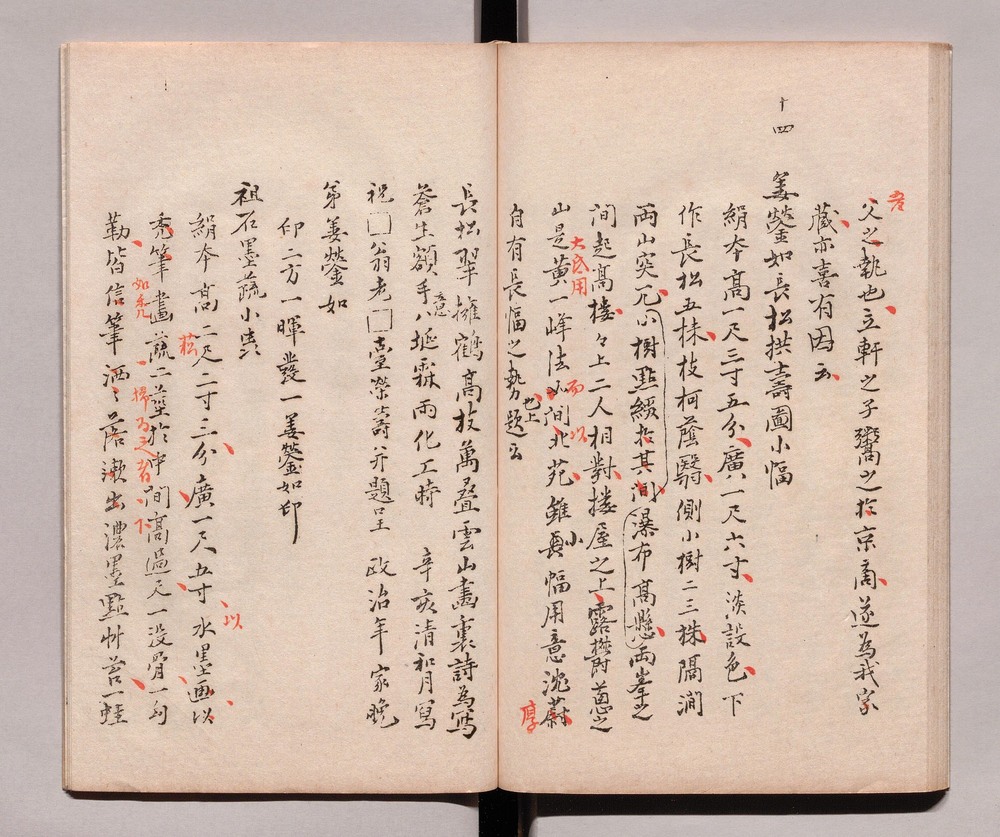 父之執也立軒之子鬻之於京商遂為我家
吾
藏亦喜有因云
十四
姜鎣如長松拱壽圖小幅
絹本高一尺三寸五分廣一尺六寸淡設色下
作長松五株枝柯蔭翳側小樹二三株隔澗
兩山突兀小樹點綴於其間瀑布高懸兩峯之
間起高樓々上二人相對樓屋之上露欝蔥之
山是黄一峰法 間北苑雖小 幅用意沈蔚
大底用
而
以
厚
自有長幅之勢題云
也上
長松翠擁鶴高枝萬疊雲山畫裏詩為寫
蒼生額手意八埏霖雨化工時 辛亥清和月寫
祝□翁老□臺榮壽并題呈 政治年家晚
弟姜鎣如
印二方一暉發一姜鎣如印
祖石墨蔬小
絹本高二尺二寸三分廣一尺五寸水墨画以
菘
以
禿筆畫蔬二 於中間高過尺一没骨一勾
如禿
掃 之者
下
勒皆信筆洒々落 出濃墨點艸苔一蛙